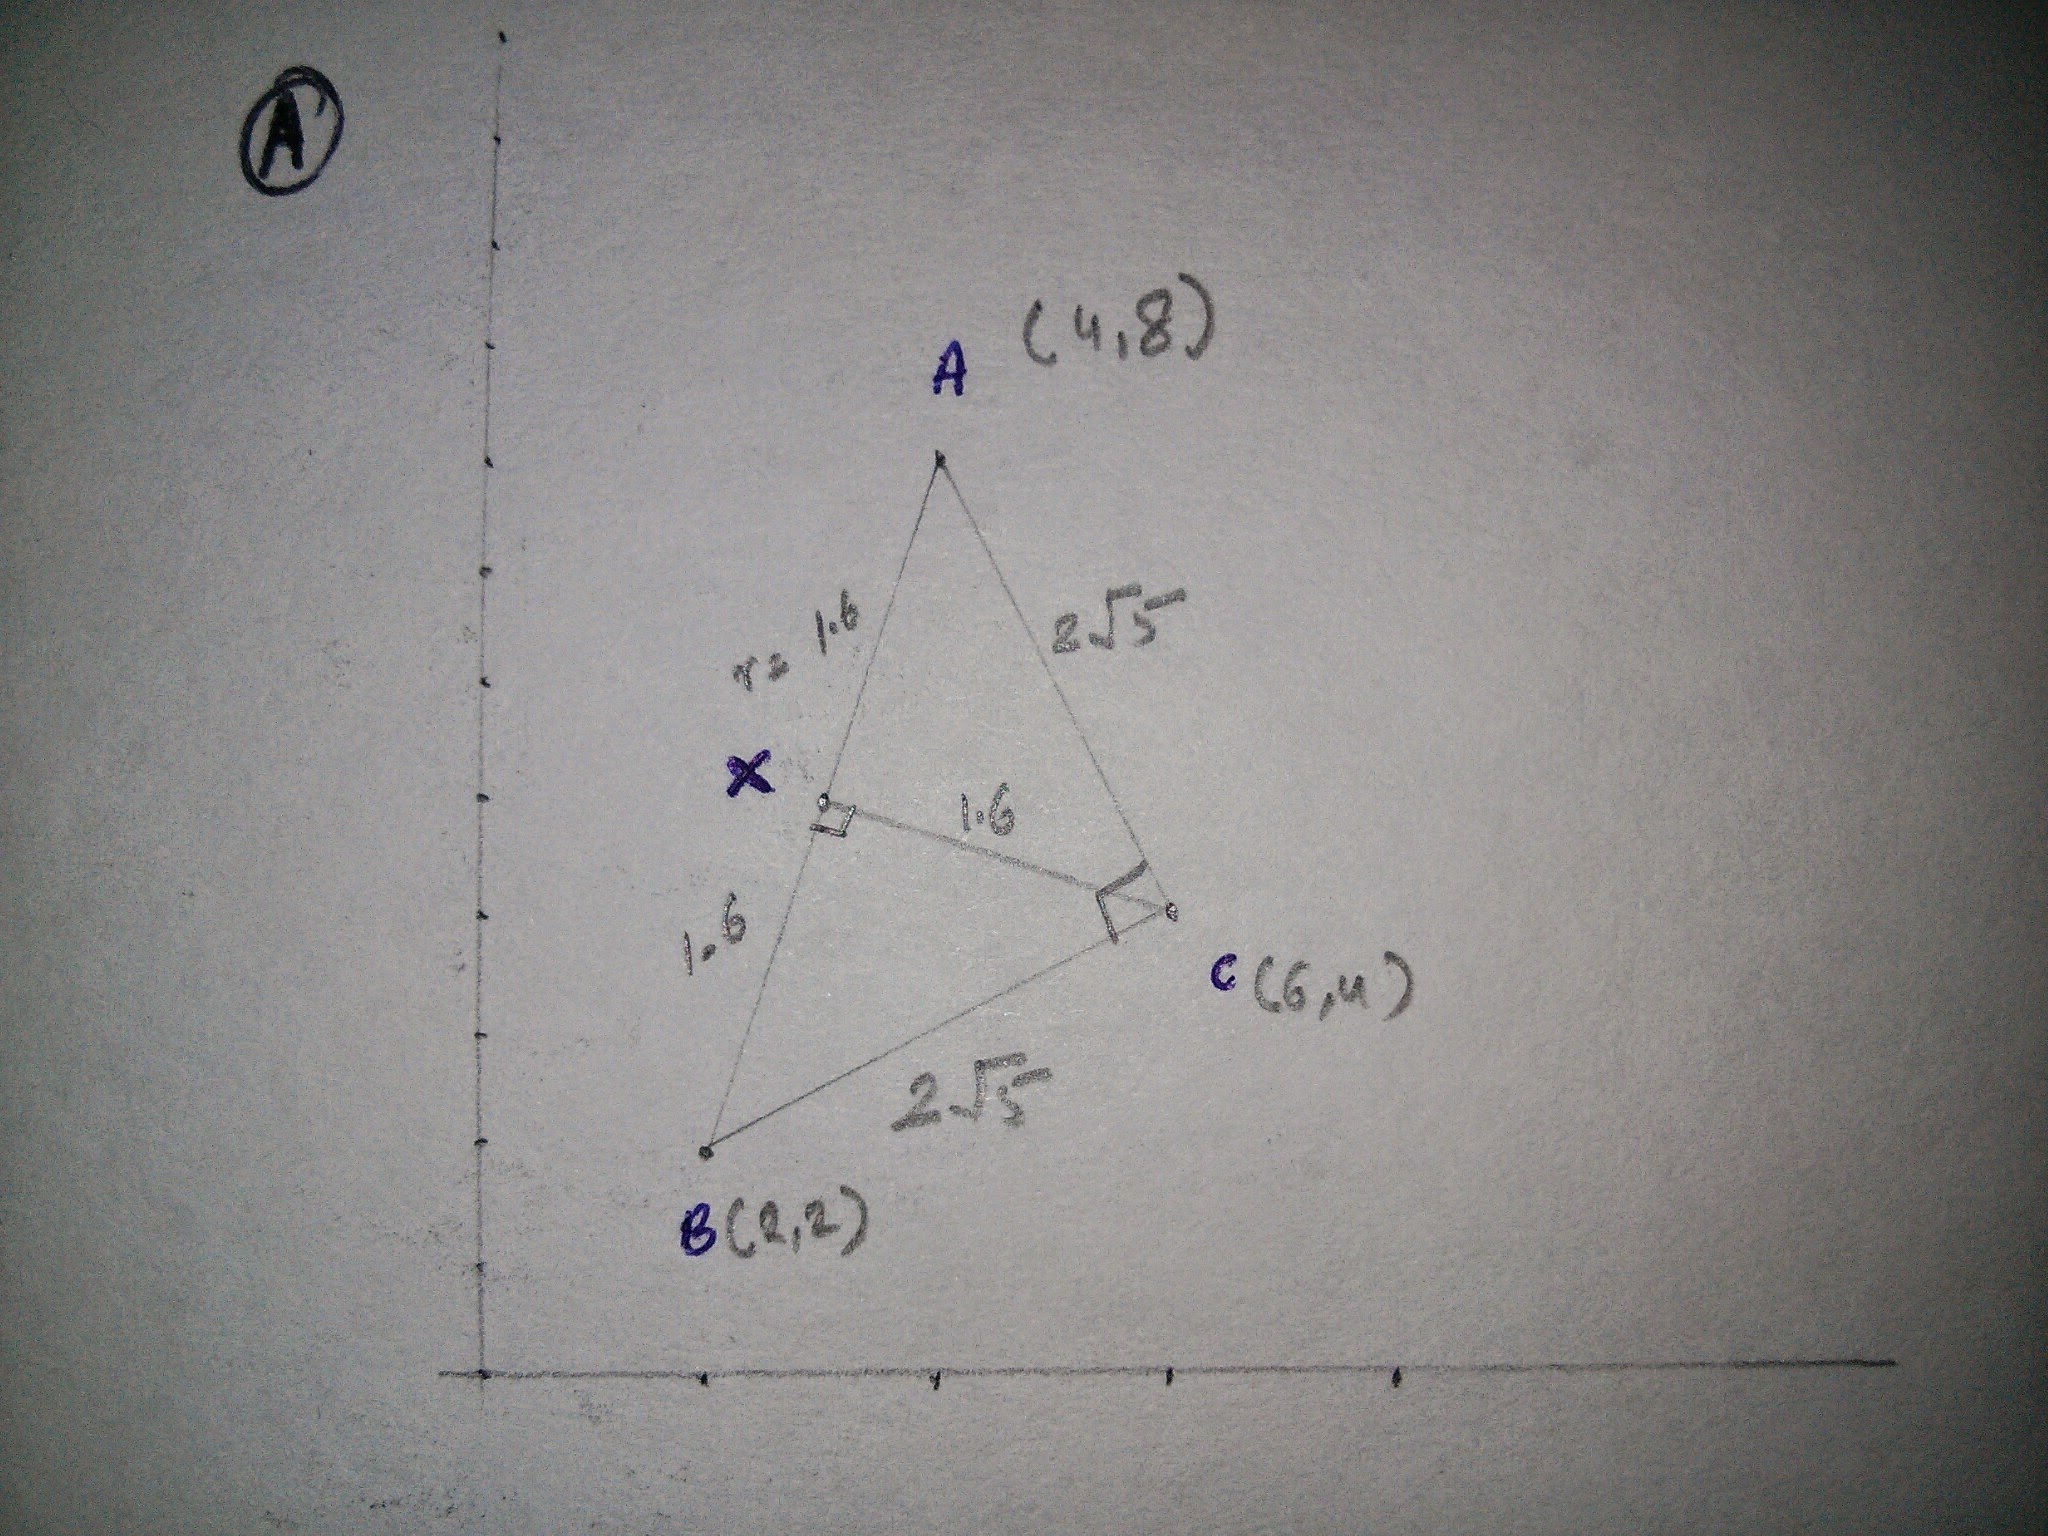 A
A (4,8)
r= 1.6
2√5
X
1.6
1.6
C (6,4)
2√5
B (2,2)